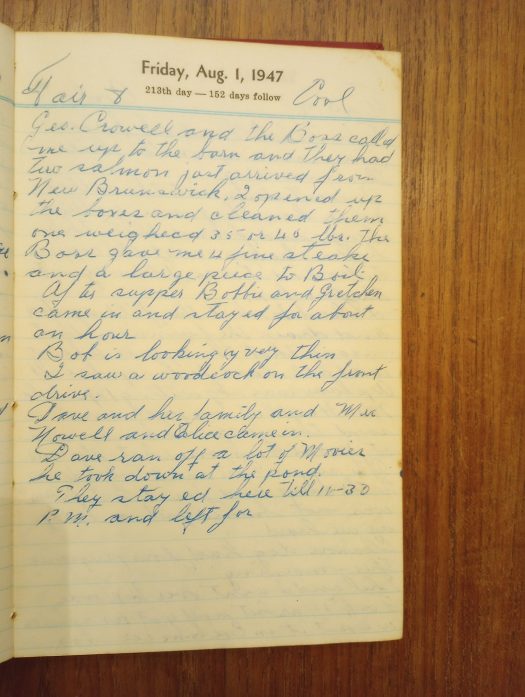 Friday, Aug. 1, 1947
213th day — 152 days follow
Fair & Cool
Geo. Crowell and the Boss called
me up to the barn and they had
two salmon just arrived from
New Brunswick. I opened up
the boxes and cleaned them
one weighed 35 or 40 lbs. The
Boss gave me 4 fine steaks
and a large piece to Boil.
After supper Bobbie and Gretchen
came in and stayed for about
an hour
Bob is looking very thin
I saw a woodcock on the front
drive.
Dave and her family and Mrs
Nowell and Alice came in.
Dave ran off a lot of Movies
he took down at the pond.
They stayed here till 11-30
P.M. and left for